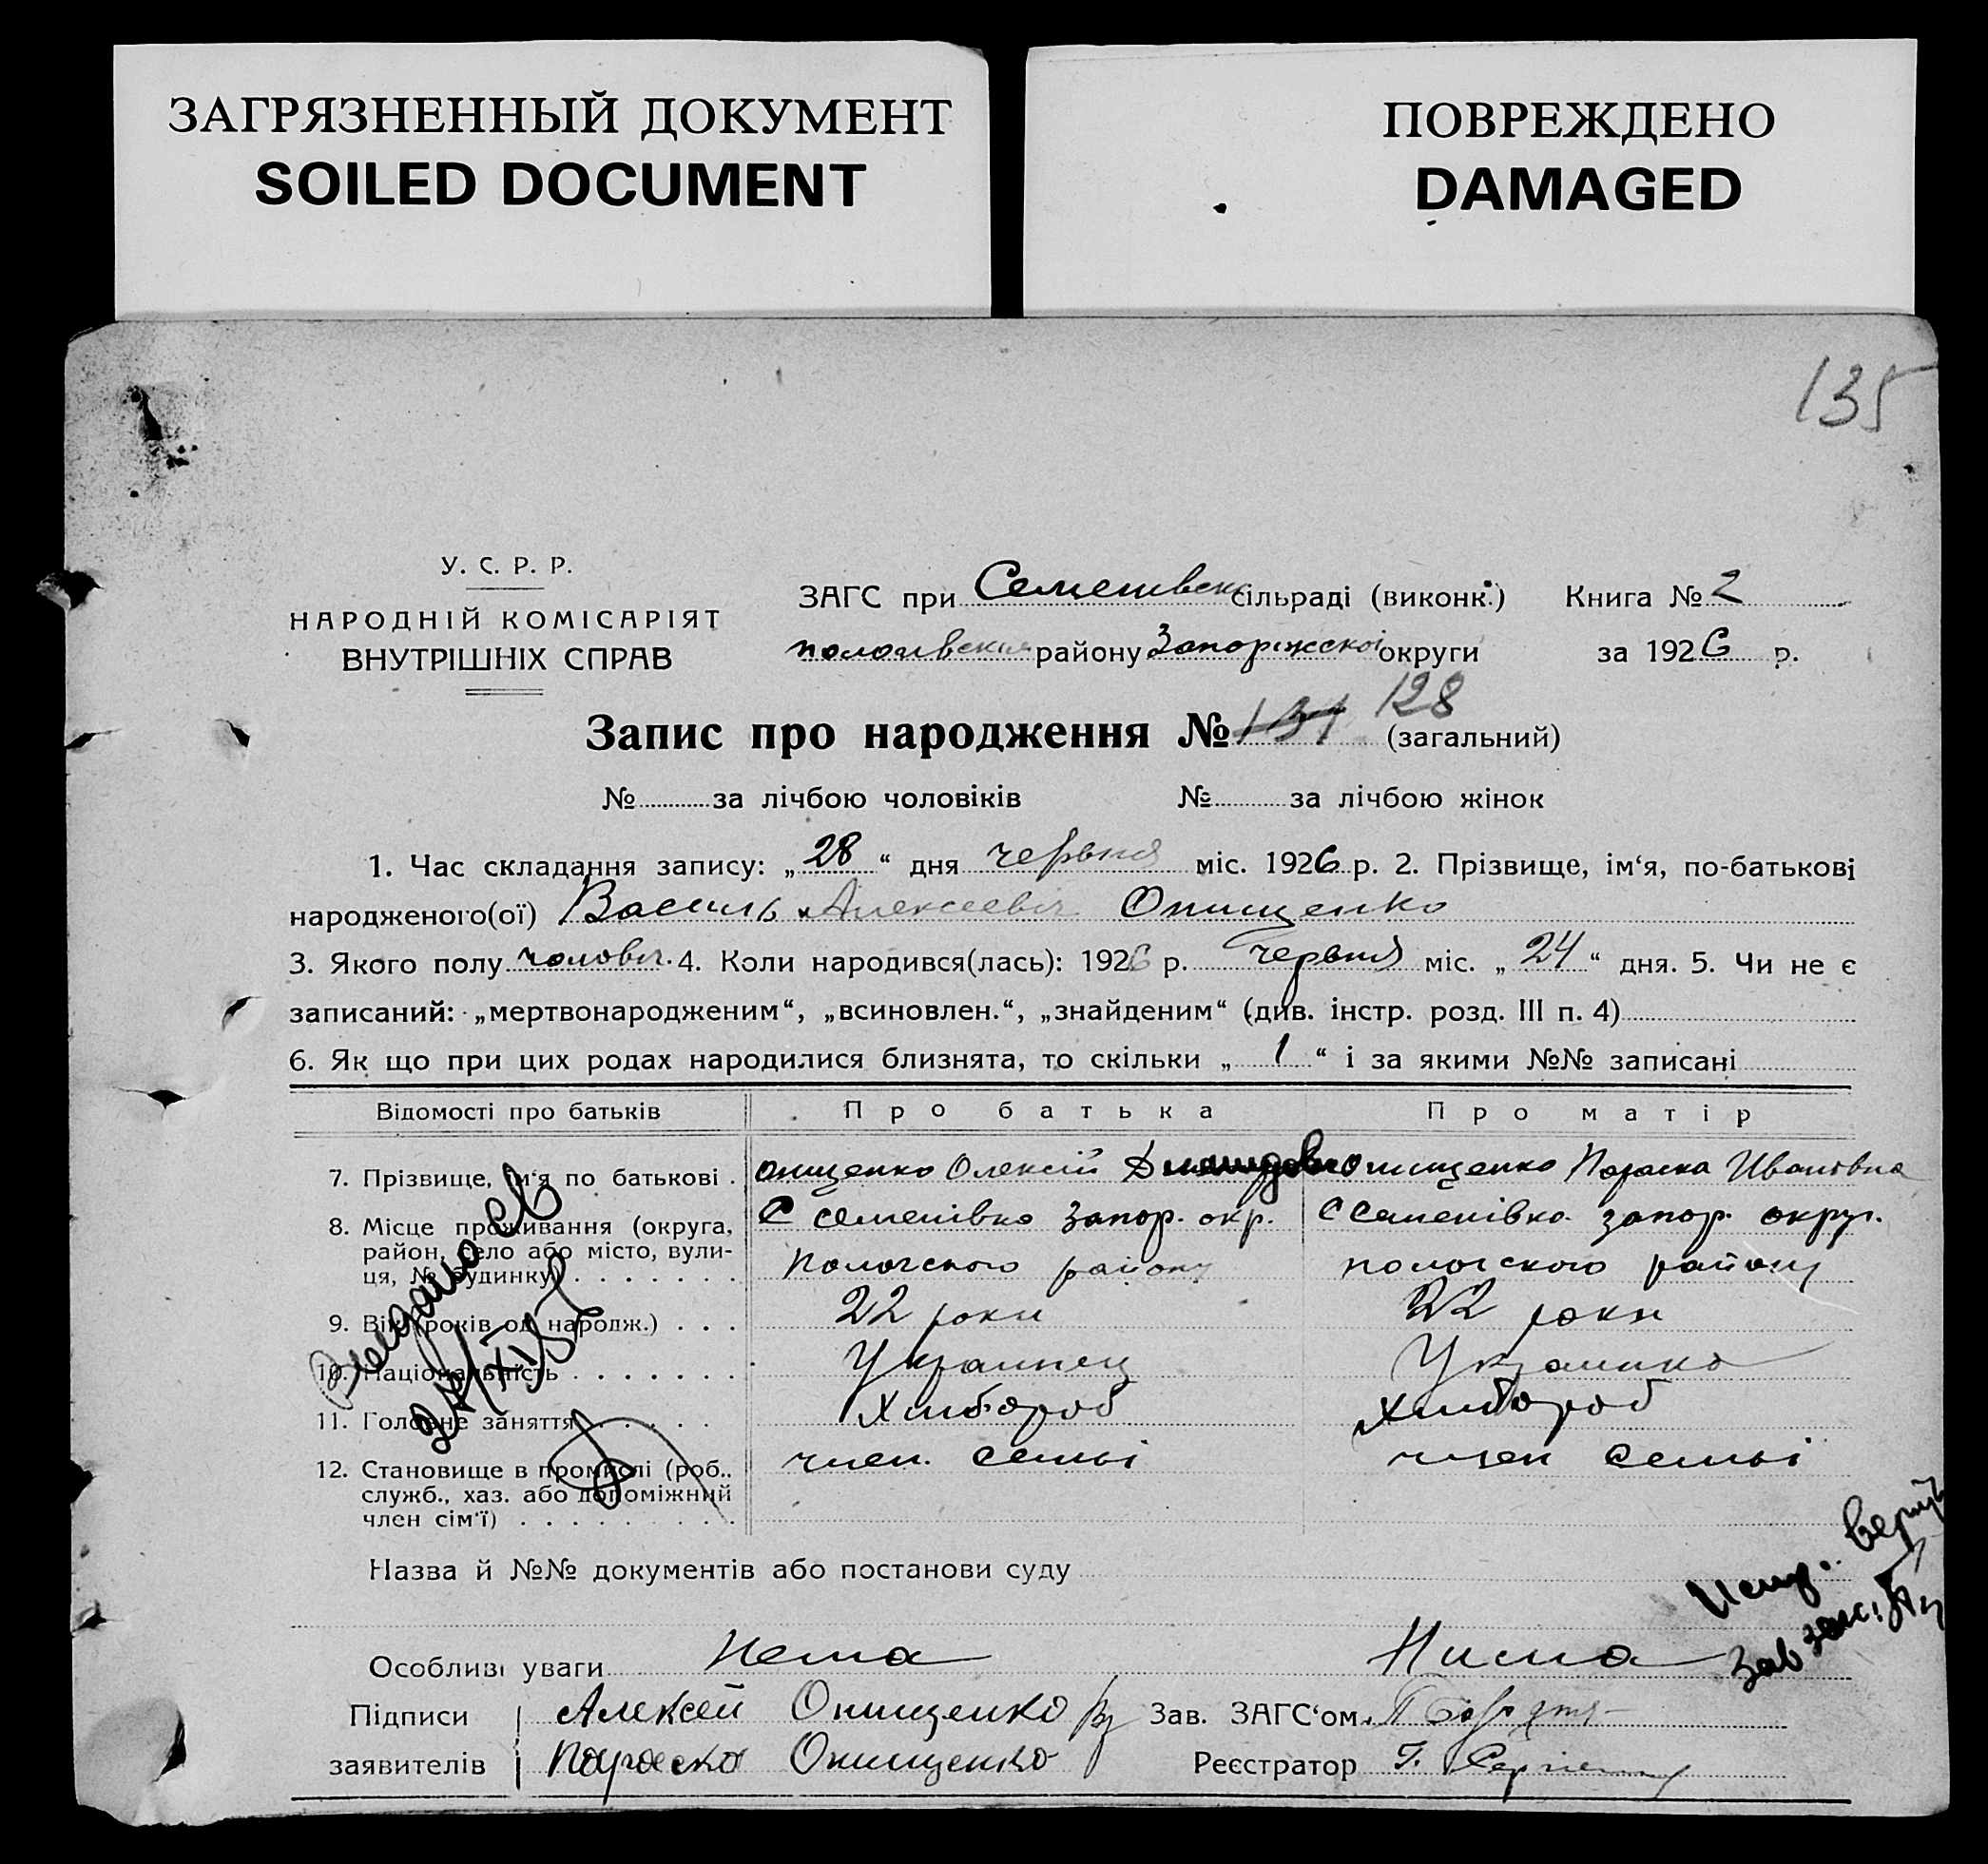 ЗАГРЯЗНЕННЫЙ ДОКУМЕНТ
SOILED DOCUMENT
ПОВРЕЖДЕНО
DAMAGED
135
У. С. Р. Р.
НАРОДНІЙ КОМІСАРІЯТ
ВНУТРІШНІХ СПРАВ
ЗАГС при Семенівськ сільраді (виконк.) Книга № 2
району Запоріжскої округи за 1926 р.
Запис про народження № 131 128 (загальний)
№ за лічбою чоловіків № за лічбою жінок
1. Час складання запису: „28“ дня червня міс. 1926 р. 2. Прізвище, ім‘я, по-батькові
народженого(ої) Василь Алексеевіч Онищенко
3. Якого полу чоловіч. 4. Коли народився(лась): 1926 р. червня міс. „24“ дня. 5. Чи не є
записаний: „мертвонародженим“, „всиновлен.“, „знайденим“ (див. інстр. розд. III п. 4)
6. Як що при цих родах народилися близнята, то скільки „1“ і за якими №№ записані
Відомості про батьків Про батька Про матір
7. Прізвище, ім‘я по батькові . Онищенко Олексій Онищенко Параска Ивановна
8. Місце проживання (округа, район, село або місто, вулиця, № будинку) С Семенівка Запор. окр. С Семенівка Запор. округ.
Пологского району пологского району
9. Вік (років од народж.) . . . 22 роки 22 роки
10. Національність . . . . . . . Украинец Украинка
11. Головне заняття . . . . . Хлибороб Хлибороб
12. Становище в промислі (роб., член. семьі член семьі
служб., хаз. або допоміжний
член сім‘ї) . . . . . . . . .
Назва й №№ документів або постанови суду
Особливі уваги Нема Нима
Підписи Алексей Онищенко Зав. ЗАГС‘ом
заявителів Параска Онищенко Реєстратор Г. Сергіенко